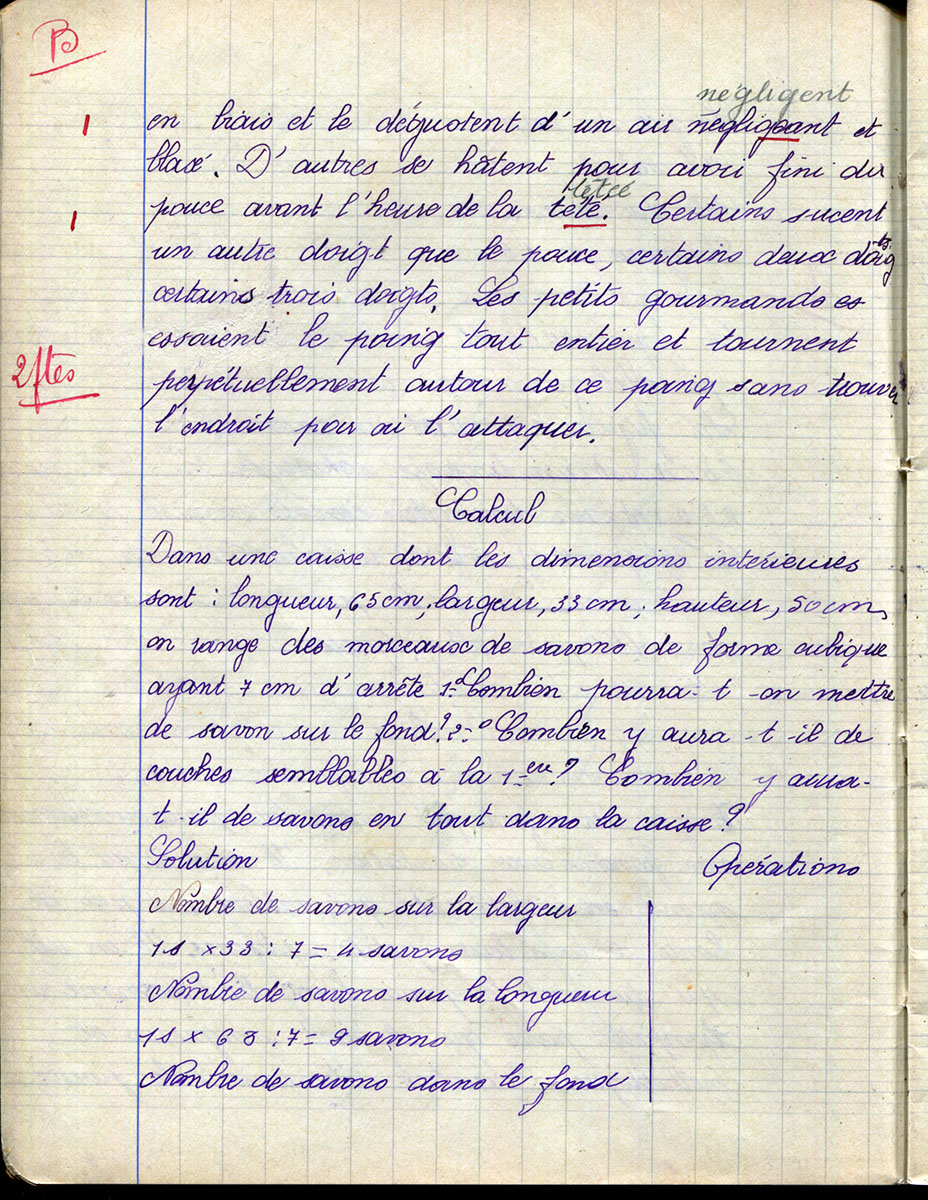 B
négligent
1 en biais et le dégustent d'un air négligeant et
blasé. D'autres se hâtent pour avoir fini du
tétée
1 pouce avant l'heure de la tété. Certains sucent
un autre doigt que le pouce, certains deux doigts
certains trois doigts. Les petits gourmands es
essaient le poing tout entier et tournent
2 ftes perpétuellement autour de ce poing sans trouver
l'endroit pour où l'attaquer.
Calcul
Dans une caisse dont les dimensions intérieures
sont : longueur, 65 cm, largeur, 33 cm ; hauteur, 50 cm,
on range des morceaux de savons de forme cubique
ayant 7 cm d'arrête 1º Combien pourra-t-on mettre
de savon sur le fond? 2º Combien y aura-t-il de
couches semblables à la 1ere? Combien y aura-
t-il de savons en tout dans la caisse?
Solution Opérations
Nombre de savons sur la largeur
1s x 33 : 7 = 4 savons
Nombre de savons sur la longueur
1s x 63 : 7 = 9 savons
Nombre de savons dans le fond